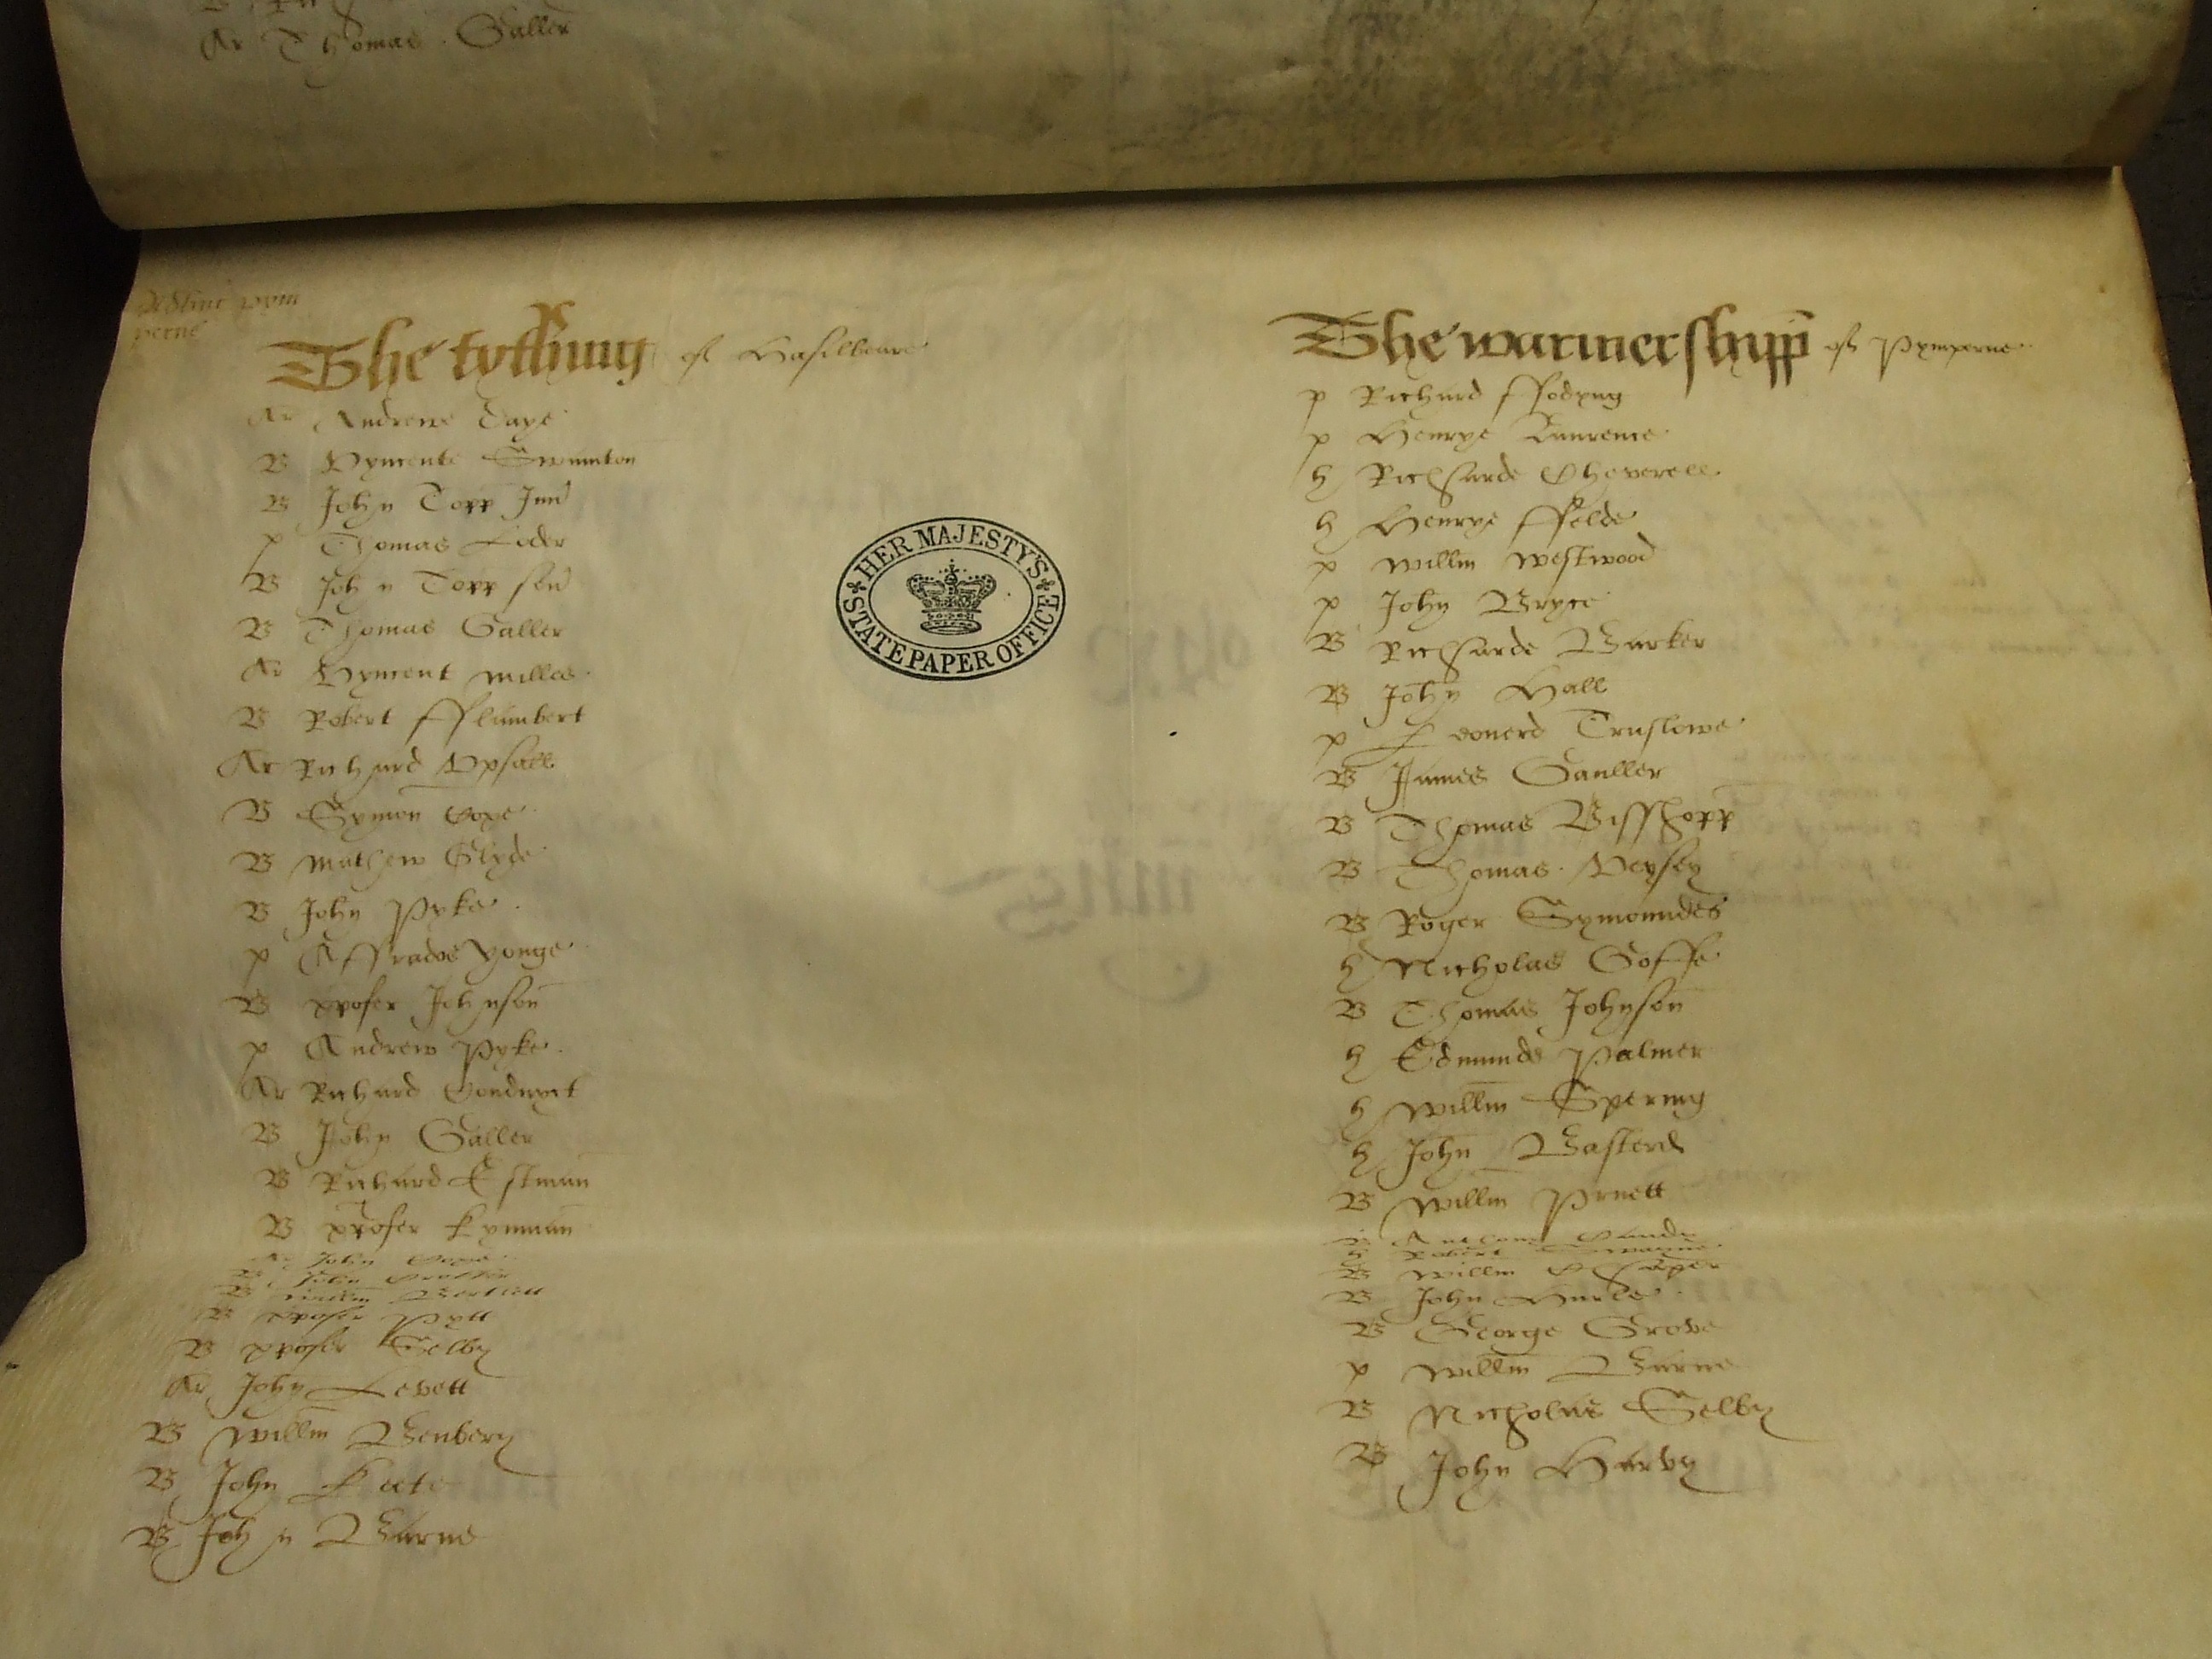 Ar Thomas Galler
Adhuc pym
perne
The tythyng of Hasilbeare
Ar Andrewe Daye
B Vyncente Swannton
B John Topp Jun
p Thomas Loder
B John Topp sen
B Thomas Galler
Ar Vyncent Milles
B Robert fflambert
Ar Richard Upsall
B Symon Coxe
B Mathew Clyde
B John Pyke
p Affrados Yonge
B xpofer Johnson
p Andrew Pyke
Ar Richard Conduyct
B John Galler
B Richard Estman
B xpofer Kynman
John
John
B Willm Bartlett
B xpofer Pytt
B xpofer Selby
Ar John Levett
B Willm Benbery
B John Keete
B John Barne
HER MAJESTY'S
STATE PAPER OFFICE
The warmershypp of Pymperne
p Richard ffodyng
p Henrye Laurence
h Richarde Cheverell
h Henrye ffelde
p Willm Westwood
p John Bryce
B Richarde Barker
B John Hall
p Leonerd Truslowe
B James Gauller
B Thomas Bisshopp
B Thomas Veysey
B Roger Symonndes
h Nicholas Goffe
B Thomas Johnson
h Edmunde Palmer
h Willm Spering
h John Basterd
B Willm Pruett
Antony
h Robert Swayne
B Willm Chaper
B John Harle
B George Grove
p Willm Barne
B Nicholas Selby
B John Harvy